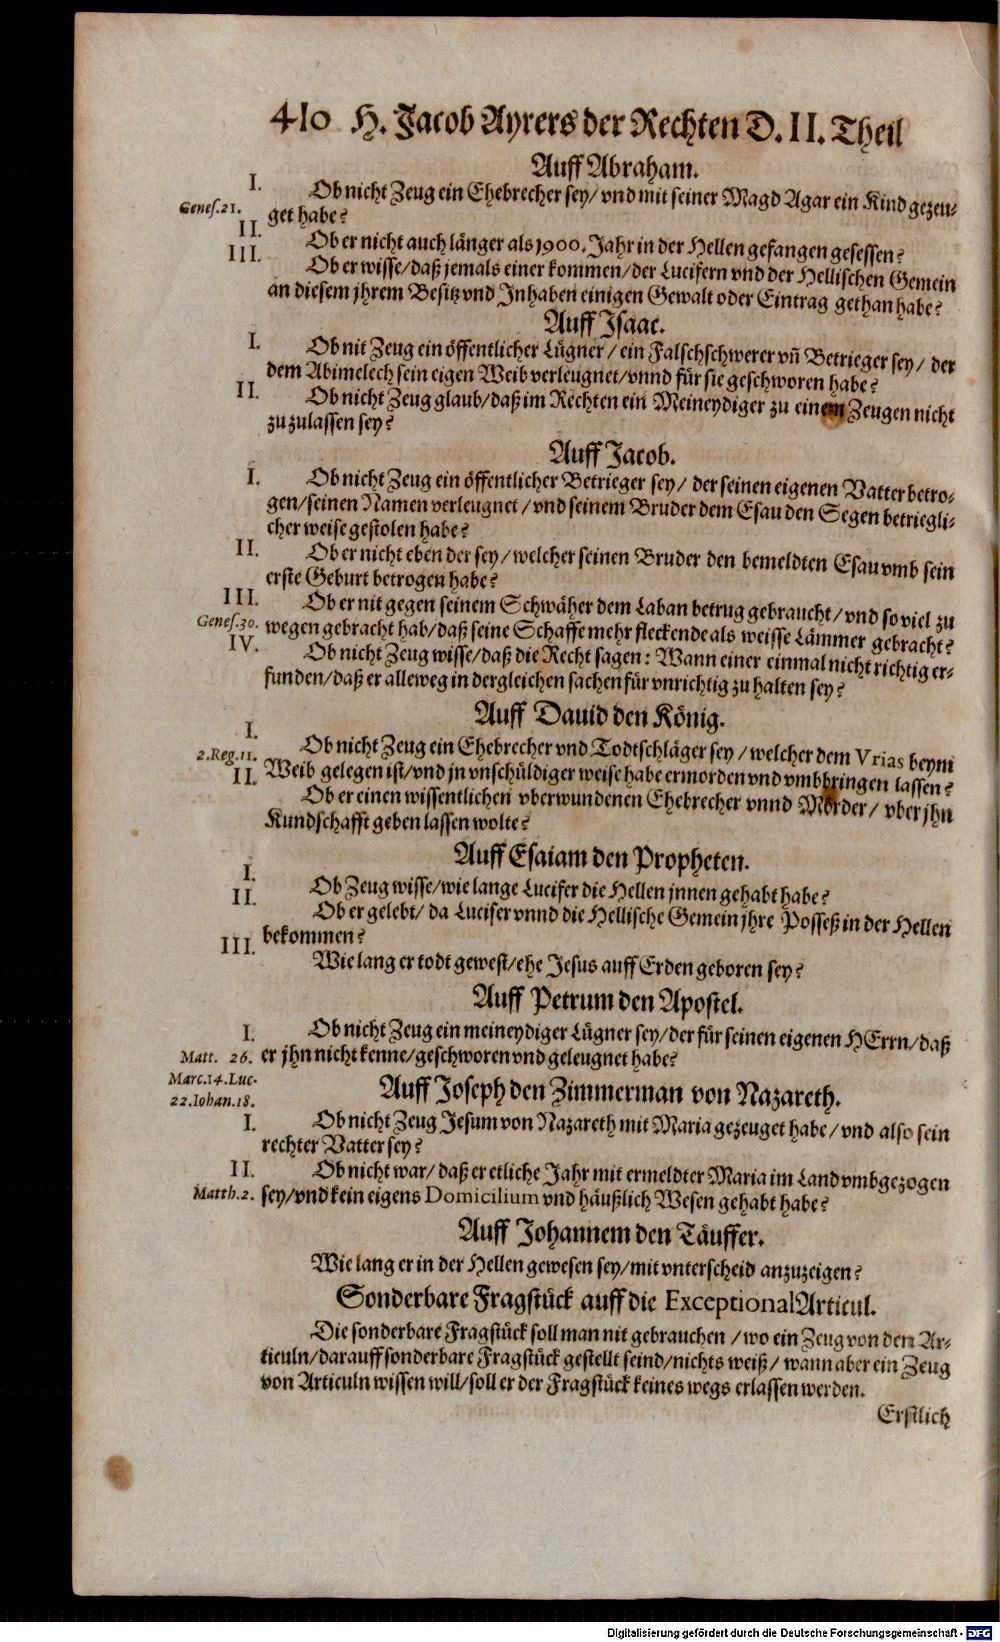 410 H. Jacob Ayrers der Rechten D. II. Theil
Auff Abraham.
I. Ob nicht Zeug ein Ehebrecher sey/ vnd mit seiner Magd Agar ein Kind gezeu-
Genes. 21. get habe?
II. Ob er nicht auch länger als 1900. Jahr in der Hellen gefangen gesessen?
III. Ob er wisse/ daß jemals einer kommen/ der Lucifern vnd der Hellischen Gemein
an diesem jhrem Besitz vnd Inhaben einigen Gewalt oder Eintrag gethan habe?
Auff Isaac.
I. Ob nit Zeug ein öffentlicher Lügner/ ein Falschschwerer vñ Betrieger sey/ der
dem Abimelech sein eigen Weib verleugnet/ vnnd für sie geschworen habe?
II. Ob nicht Zeug glaub/ daß im Rechten ein Meineydiger zu einem Zeugen nicht
zuzulassen sey?
Auff Jacob.
I. Ob nicht Zeug ein öffentlicher Betrieger sey/ der seinen eigenen Vatter betro-
gen/ seinen Namen verleugnet/ vnd seinem Bruder dem Esau den Segen betriegli-
cher weise gestolen habe?
II. Ob er nicht eben der sey/ welcher seinen Bruder den bemeldten Esau vmb sein
erste Geburt betrogen habe?
III. Ob er nit gegen seinem Schwäher dem Laban betrug gebraucht/ vnd so viel zu
Genes. 30. wegen gebracht hab/ daß seine Schaffe mehr fleckende als weisse Lämmer gebracht?
IV. Ob nicht Zeug wisse/ daß die Recht sagen: Wann einer einmal nicht richtig er-
funden/ daß er alleweg in dergleichen sachen für vnrichtig zu halten sey?
Auff Dauid den König.
I. Ob nicht Zeug ein Ehebrecher vnd Todtschläger sey/ welcher dem Vrias beym
2. Reg. 11. Weib gelegen ist/ vnd jn vnschüldiger weise habe ermorden vnd vmbbringen lassen?
II. Ob er einen wissentlichen vberwundenen Ehebrecher vnnd Mörder/ vber jhn
Kundschafft geben lassen wolte?
Auff Esaiam den Propheten.
I. Ob Zeug wisse/ wie lange Lucifer die Hellen jnnen gehabt habe?
II. Ob er gelebt/ da Lucifer vnnd die Hellische Gemein jhre Posseß in der Hellen
bekommen?
III. Wie lang er todt gewest/ ehe Jesus auff Erden geboren sey?
Auff Petrum den Apostel.
I. Ob nicht Zeug ein meineydiger Lügner sey/ der für seinen eigenen HErrn/ daß
Matt. 26. er jhn nicht kenne/ geschworen vnd geleugnet habe?
Marc. 14. Luc.
22. Iohan. 18.
Auff Joseph den Zimmerman von Nazareth.
I. Ob nicht Zeug Jesum von Nazareth mit Maria gezeuget habe/ vnd also sein
rechter Vatter sey?
II. Ob nicht war/ daß er etliche Jahr mit ermeldter Maria im Land vmbgezogen
Matth. 2. sey/ vnd kein eigens Domicilium vnd häußlich Wesen gehabt habe?
Auff Johannem den Täuffer.
Wie lang er in der Hellen gewesen sey/ mit vnterscheid anzuzeigen?
Sonderbare Fragstück auff die Exceptional Articul.
Die sonderbare Fragstück soll man nit gebrauchen/ wo ein Zeug von den Ar-
ticuln/ darauff sonderbare Fragstück gestellt seind/ nichts weiß/ wann aber ein Zeug
von Articuln wissen will/ soll er der Fragstück keines wegs erlassen werden.
Erstlich
Digitalisierung gefördert durch die Deutsche Forschungsgemeinschaft - DFG